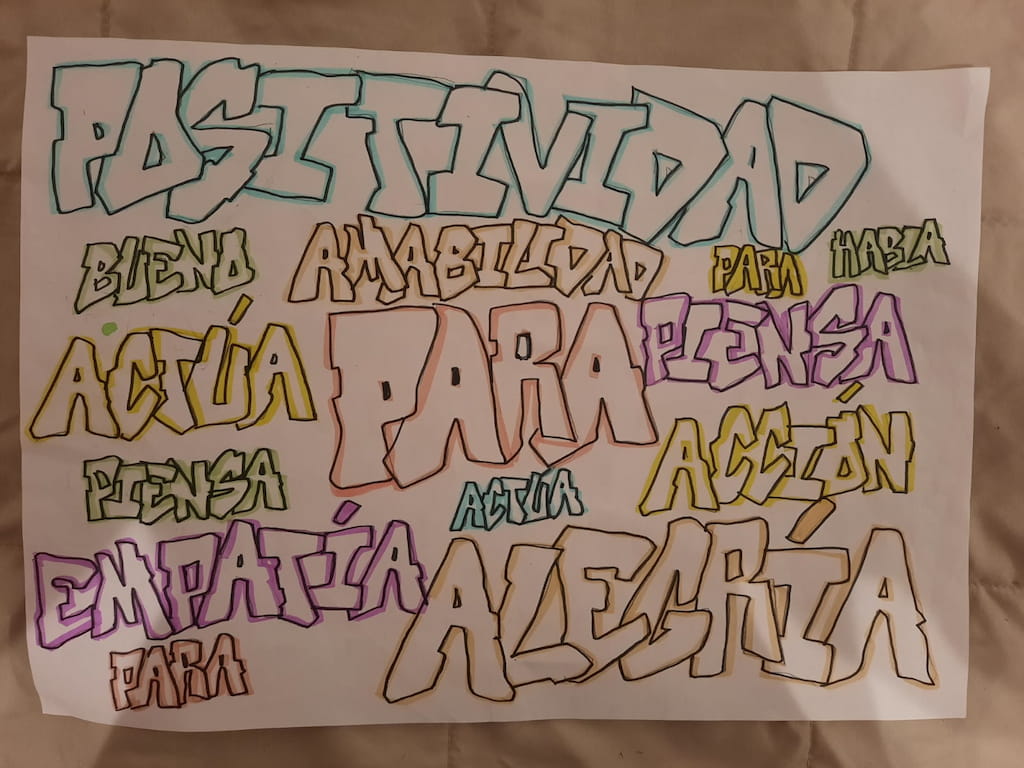 POSITIVIDAD
BUENO AMABILIDAD PARA HABLA
ACTÚA PARA PIENSA
PIENSA ACTUA ACCIÓN
EMPATÍA ALEGRÍA
PARA